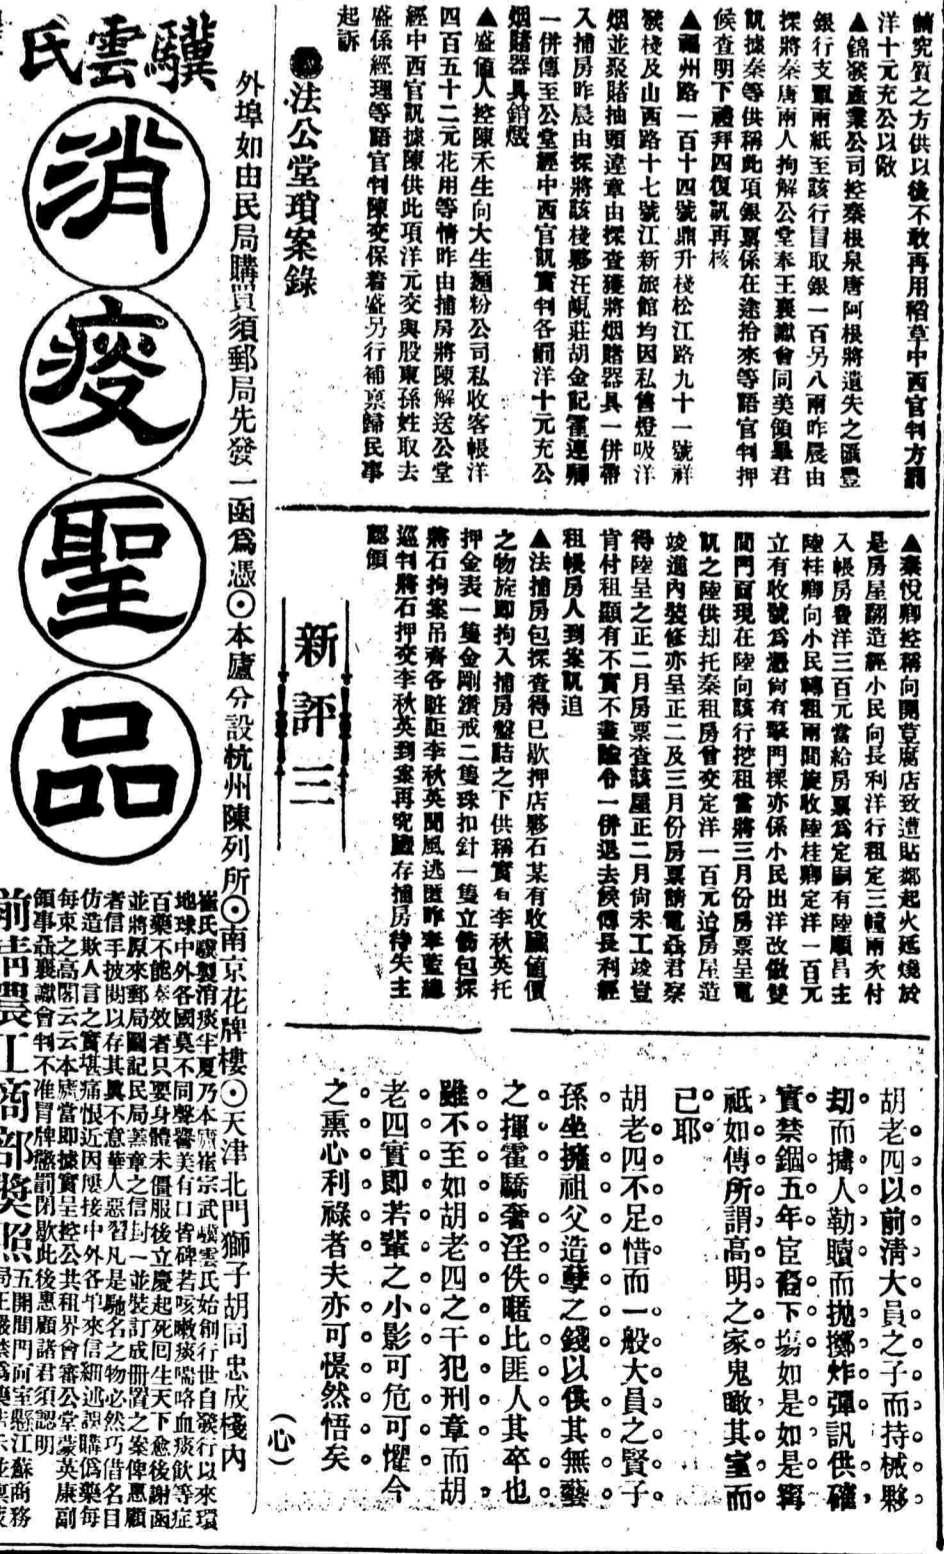 請究質之方供以後不敢再用稻草中西官判方罰
洋十元充公以儆
▲錦發產業公司控秦根泉唐阿根將遺失之匯豐
銀行支票兩紙至該行冒取銀一百另八兩昨晨由
探將秦唐兩人拘解公堂奉王襄讞會同美領畢君
訊據秦等供稱此項銀票係在途拾來等語官判押
候查明下禮拜四復訊再核
▲福州路一百十四號鼎升棧松江路九十一號祥
發棧及山西路十七號江新旅館均因私售燈吸洋
烟並聚賭抽頭違章由探查獲將烟賭器具一併帶
入捕房昨晨由探將該棧夥汪莊胡金記
一併傳至公堂經中西官訊實判各罰洋十元充公
烟賭器具銷燬
▲盛值人控陳禾生向大生麵粉公司私收客帳洋
四百五十二元花用等情昨由捕房將陳解送公堂
經中西官訊據陳供此項洋元交與股東孫姓取去
盛係經理等語官判陳交保着盛另行補稟歸民事
起訴
法公堂瑣案錄
▲秦悅卿控稱向開荳腐店致遭貼鄰起火延燒於
是房屋翻造經小民向長利洋行租定三幢兩次付
入帳房費洋三百元當給房票為定嗣有陸順昌主
陸桂卿向小民轉租兩間旋收陸桂卿定洋一百元
立有收號為憑尙有門檏亦係小民出洋改做雙
間門面現在陸向該行挖租當將三月份房票呈電
訊之陸供却托秦租房曾交定洋一百元迨房屋造
竣進內裝修亦呈正二及三月份房票請電益君察
得陸呈之正二月房票查該屋正二月尙未工竣豈
肯付租顯有不實不盡諭令一併退去候傳長利經
租帳房人到案訊追
▲法捕房包探查得已歇押店夥石某有收贓值價
之物旋即拘入捕房盤詰之下供稱實有李秋英托
押金表一隻金剛鑽戒二隻珠扣針一隻立飭包探
將石拘案吊齊各贓詎李秋英聞風逃匿昨奉藍總
巡判將石押交李秋英到案再究贓存捕房待失主
認領
新評三
胡老四以前淸大員之子而持械夥
刧而擄人勒贖而抛擲炸彈訊供確
實禁錮五年宦裔下塲如是如是寗
祗如傳所謂高明之家鬼瞰其室而
已耶
胡老四不足惜而一般大員之賢子
孫坐擁祖父造孽之錢以供其無藝
之揮霍驕奢淫佚暱比匪人其卒也
雖不至如胡老四之干犯刑章而胡
老四實即若輩之小影可危可懼今
之熏心利祿者夫亦可憬然悟矣
(心)
外埠如由民局購買須郵局先發一函爲憑⊙本廬分設杭州陳列所⊙南京花牌樓⊙天津北門獅子胡同忠成棧內
驥雲氏
消痰聖品
崔氏驥製消痰半夏乃本廬崔宗武驥雲氏始創行世自發行以來環
地球中外各國莫不同聲譽美有口皆碑若咳嗽痰喘咯血痰飲等症
百藥不能奏效者只要身體未僵服後立慶起死回生天下愈後謝函
並將原來郵局圖記民局蓋章之信封一並裝訂成冊置之案俾惠顧
者信手披閱以存其眞不意華人惡習凡是馳名之物必然巧借名目
仿造欺人言之實堪痛恨近因屢接中外各埠來信細述誤購僞藥每
每束之高閣云云本廬當即據實呈控公共租界會審公堂蒙英康副
領事益襄讞會判不准冒牌懲罰閉歇此後惠顧諸君須認明
前淸農工商部獎照